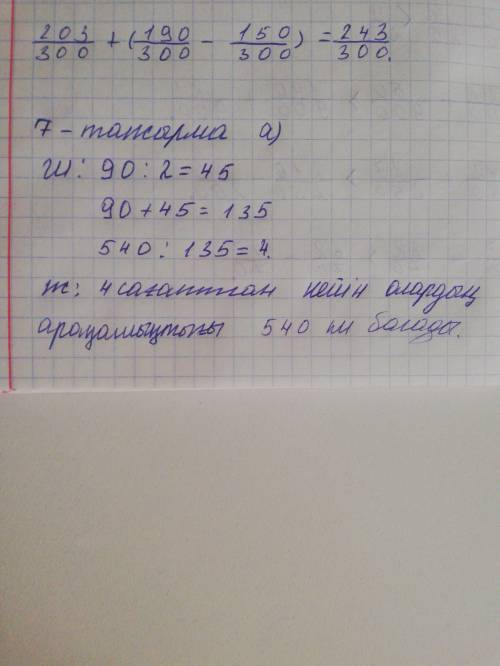 203/300 + (190/300 - 150/300) = 243/300.
7-тапсырма а)
Ш: 90 : 2 = 45
90 + 45 = 135
540 : 135 = 4.
Ж: 4 сағаттан кейін олардың
арақашықтығы 540 км болады.